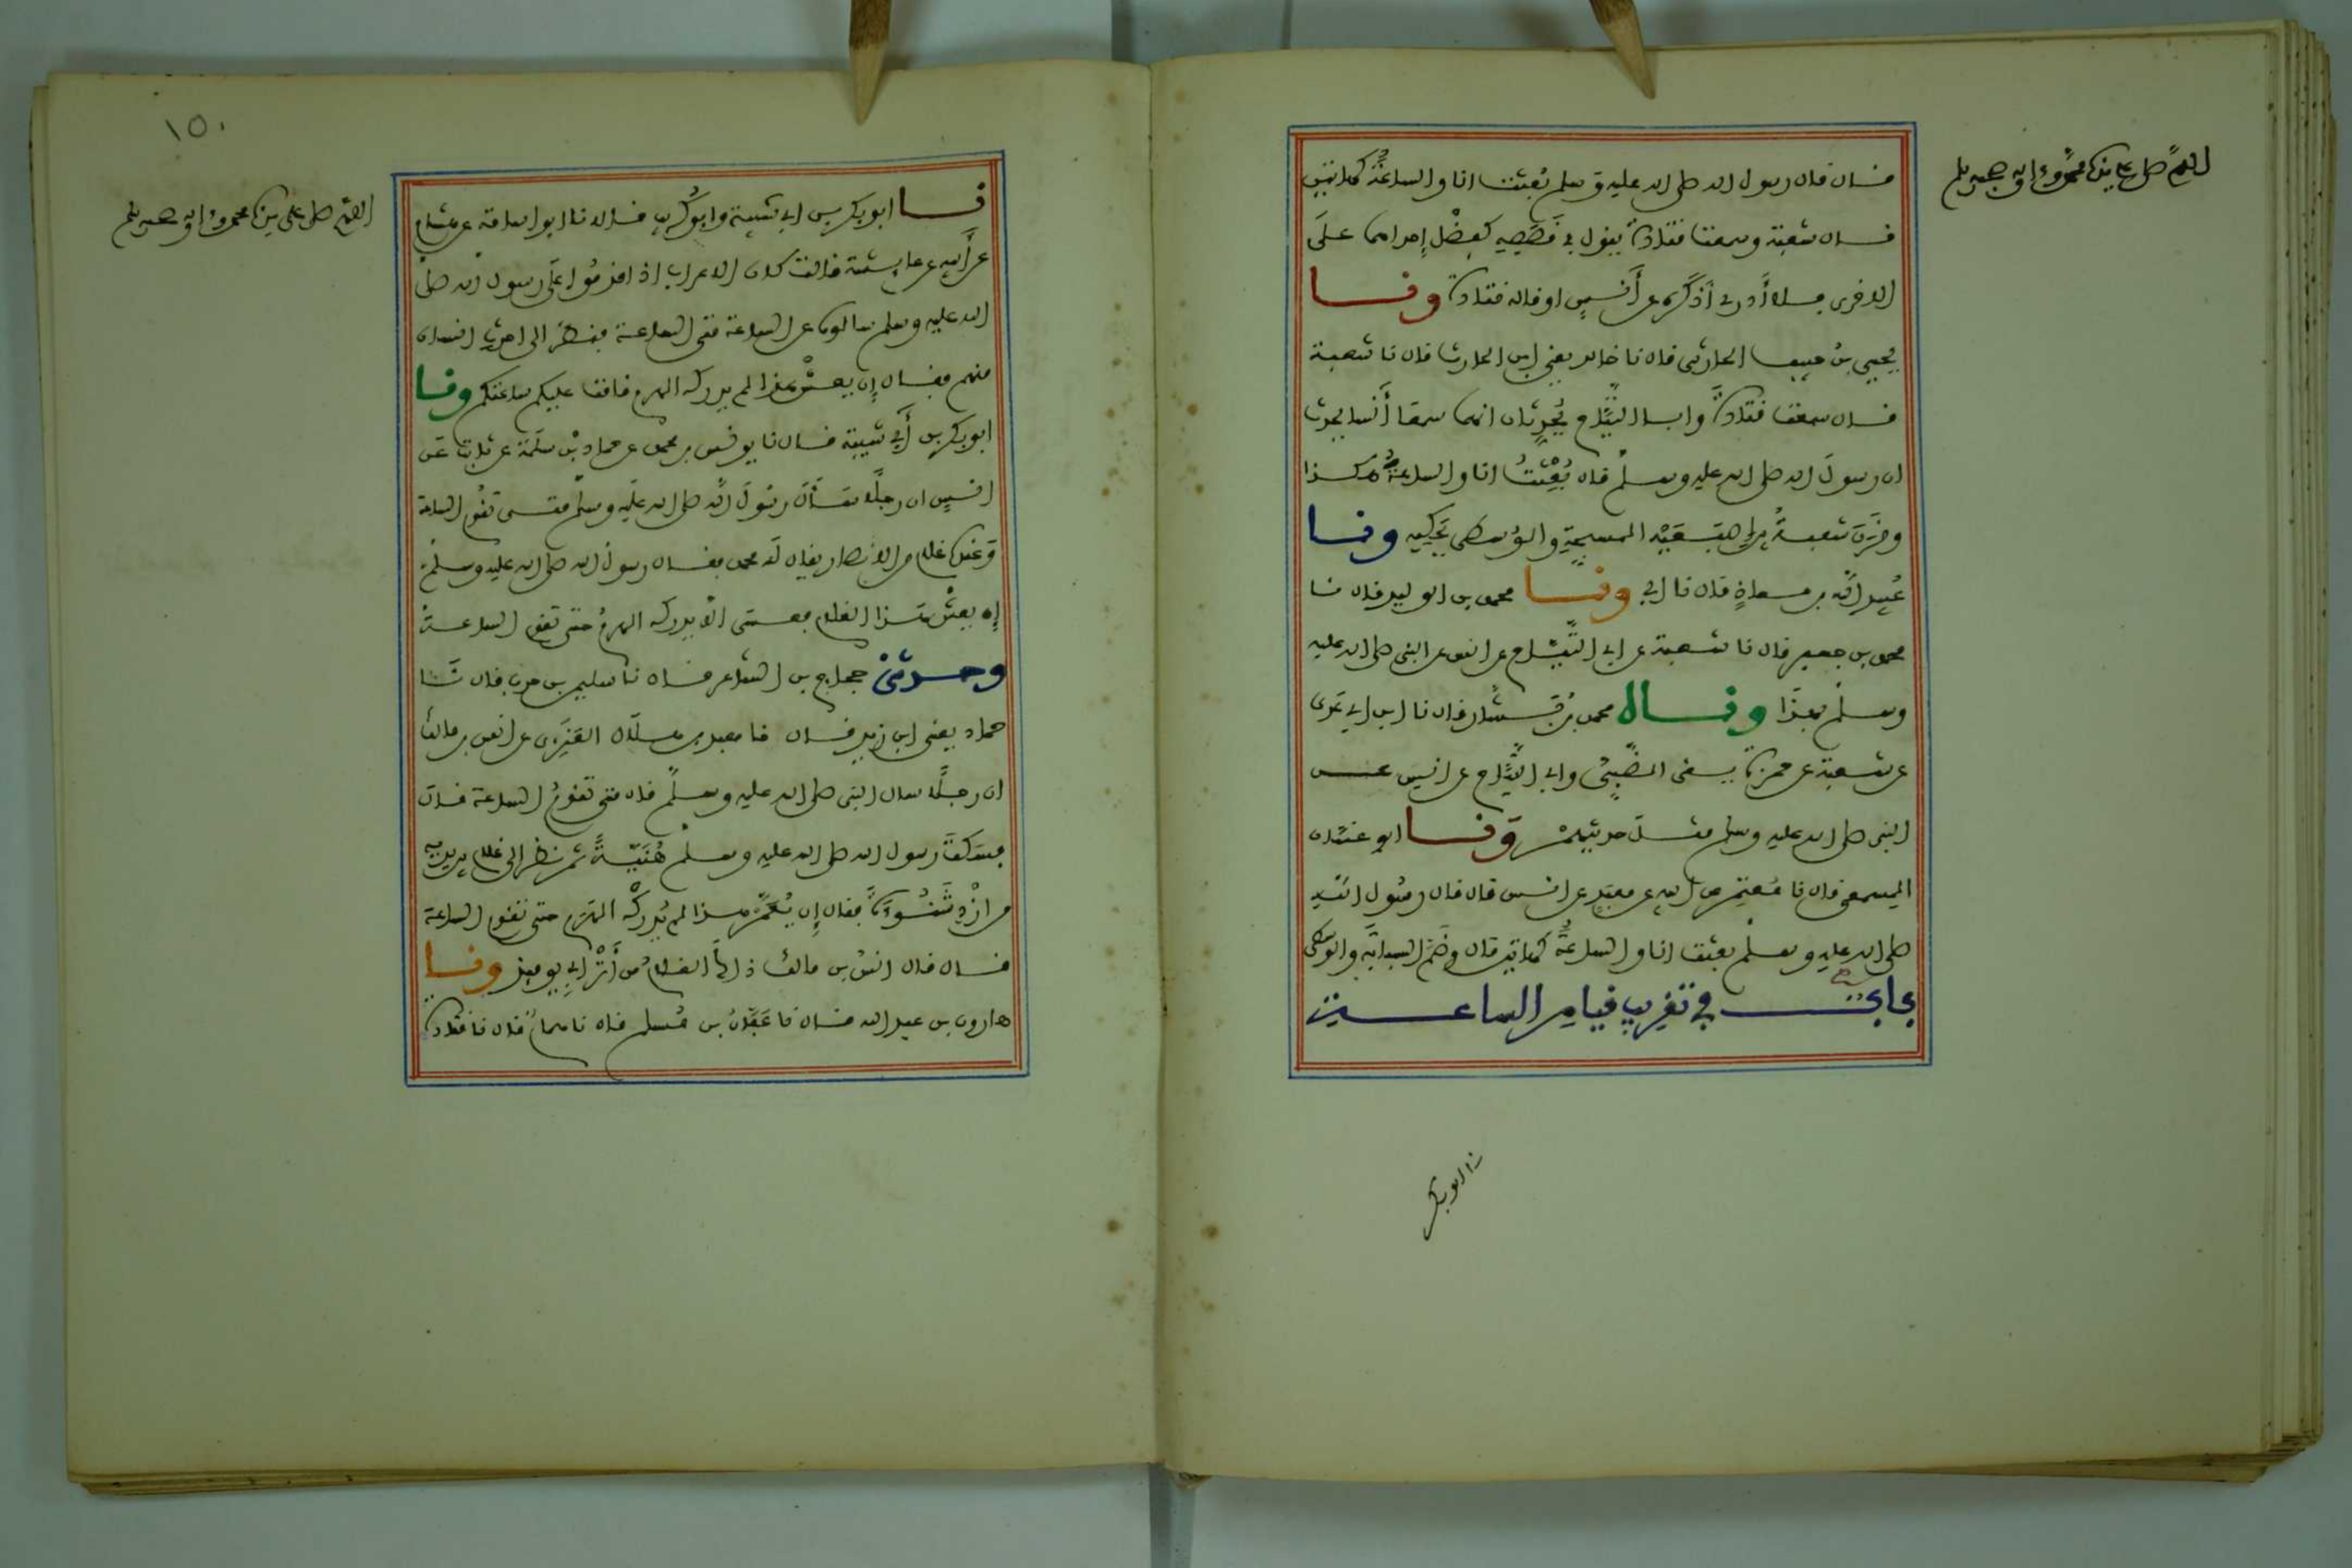 اللهم صل على سيدنا محمد وءاله وصحبه وسلم
قال قال رسول الله صلى الله عليه وسلم بُعِثت انا والساعةُ كهاتين
قال شعبة وسمعت قتادة يقول في قَصَصِه كفضْل إحداهما علَى
الاخرى فلا أدري أذَكَره عن أنسٍ او قاله قتادة ونا
يحيى بنُ حبيب الحارثي قال نا خالد يعني ابن الحارث قال نا شعبة
قال سمعت قتادةَ وابا التيَّاح يُحدِّثان انهما سمعا أنسا يحدث
ان رسولَ الله صلى الله عليه وسلم قال بُعِثْتُ انا والساعةُ هكذا
وقَرَنَ شعبةُ بين إصبَعَيْه المسبِّحةِ والوُسطى يَحكيه ونا
عُبيد الله بن معاذٍ قال نا ابي ونا محمد بن الوليد قال نا
محمد بن جعفر قال نا شعبة عن ابي التَّيَّاح عن انس عن النبي صلى الله عليه
وسلم بهذا ونا محمد بنُ بشار قال نا ابن ابي عَدي
عن شعبة عن حمزة يعني الضَّبيَّ وابي التَّيَّاح عن انس عن
النبي صلى الله عليه وسلم مثلَ حديثهمْ وَنا ابو غسّان
المِسمعي قال نا مُعتمِر عن ابيه عن معبَدٍ عن انس قال قال رسُول الله
صلى الله عليه وسلم بعثت انا والساعةُ كهاتين قال وضَمَّ السبابَةَ والوسطى
بابٌ في تقريب قيام الساعة
نا ابو بكر
١٥٠
اللهم صل على سيدنا محمد وءاله وصحبه وسلم
نا ابو بكر بن ابي شيبة وابو كُريب قالا نا ابو اسامة عن هشام
عن أبيه عن عايشة قالت كان الاعراب اذا قدمُوا علَى رسول الله صلى
الله عليه وسلم سالوه عن الساعة متى الساعة فنظر الى احدث انسان
منهم فقال إن يعشْ هذا لم يدركه الهرم قامت عليكم ساعتكم ونا
ابو بكر بن أبي شيبة قال نا يونس بن محمد عن حماد بْن سلَمة عن ثابت عَن
انسٍ ان رجلًا سَأل رسُولَ الله صلى الله علَيه وسلم متى تقُوم الساعة
وَعنده غلام من الانصار يقال لَه محمد فقال رسولُ الله صلى الله عليه وسلم
إن يعشْ هَذا الغلام فعسَى الاّ يدركه الهرمُ حتى تقوم الساعة
وحدثني حجاج بن الشاعر قال نا سليمن بن حرب قال نَا
حماد يعني ابن زيد قال نا معبد بن هلَال العَنَزي عن انس بن مالك
ان رجلًا سال النبي صلى الله عليه وسلم قال متى تقومُ الساعة قال
فسَكت رسول الله صلى الله عليه وسلم هُنَيَّةً ثم نظر الى غلام بين يديه
من ازْدِ شَنُوءَة فقال إن عُمِّر هذا لم يُدركْه الهَرَم حتى تقوم الساعة
قال قال انسُ بن مالك ذاك الغلامُ من أَتْرَابِي يوميذ ونا
هارون بن عبد الله قال نا عَفَّانُ بن مُسلم قال نا همامٌ قال نا قتادة